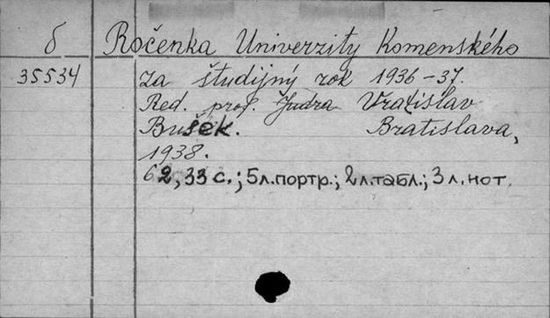 б Ročenka Univerzity Komenského
35534 za študijný rok 1936-37.
Red. prof. Judra Vratislav
Bušek. Bratislava,
1938.
62, 33 с.; 5 л. портр.; 2 л. табл.; 3 л. нот.